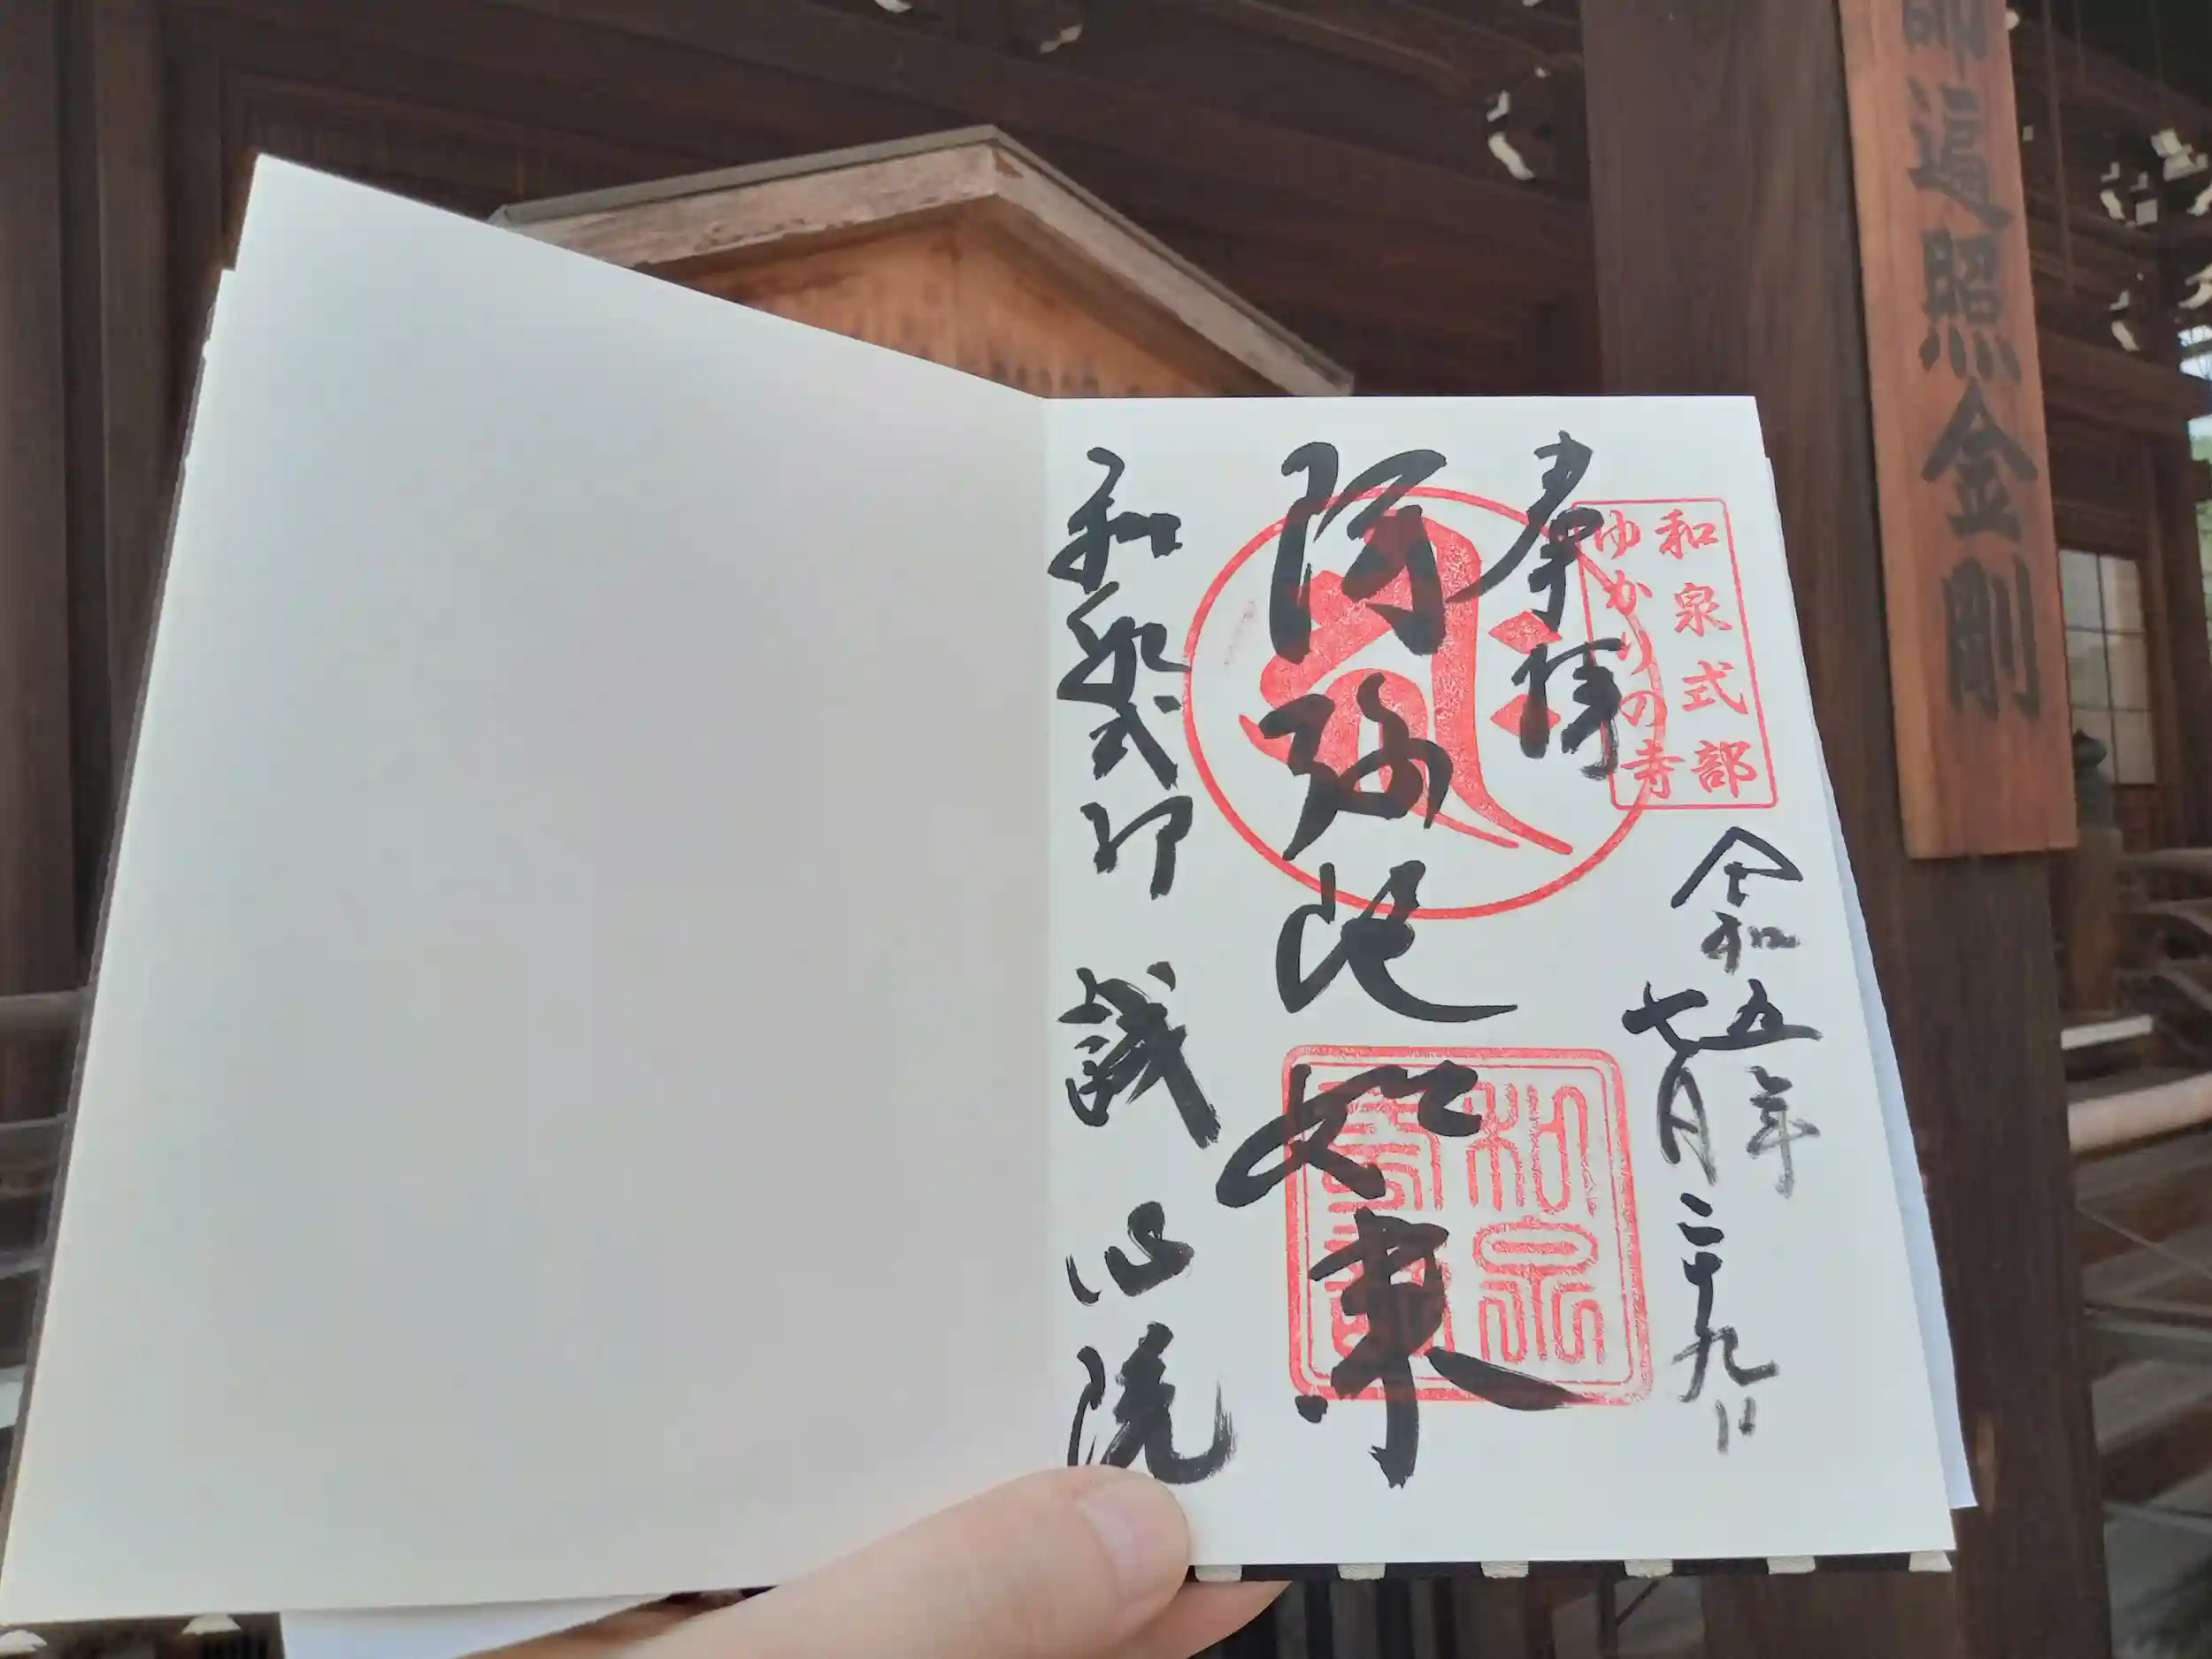 遍照金剛
和泉式部
ゆかりの寺
奉拝
令和五年
七月二十九日
阿弥陀如来
和泉
和泉式部 誠心院